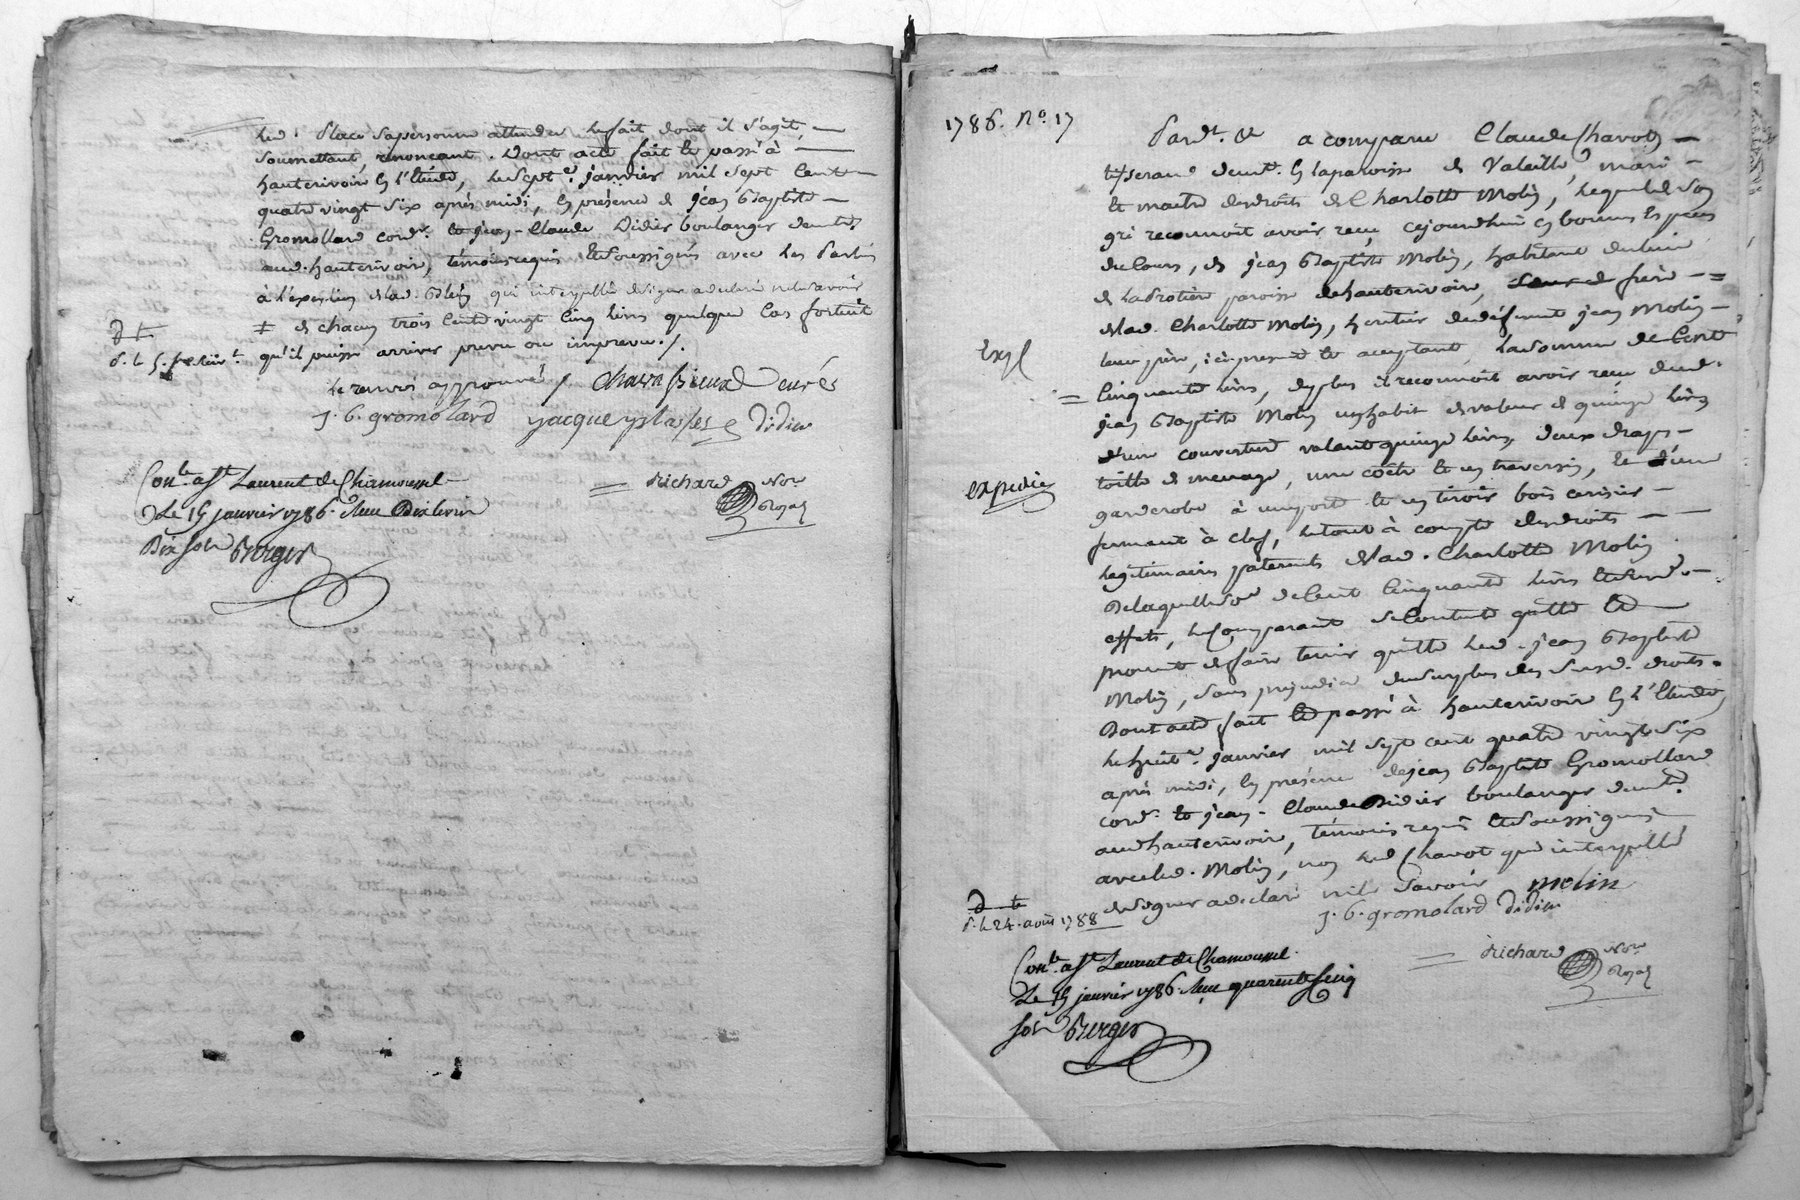 led. Place sa personne attendu le fait dont il s'agit,
soumettant renonçant. Dont acte fait et passé à
hauterivoir en l'étude, le sept.e janvier mil sept cent
quatre vingt six après midi, en présence de jean Baptiste
Gromollard cord.r et jean-Claude Didier boulanger demt.
aud. hauterivoir, témoins requis et soussignés avec les Parties
à l'exception de lad. qui interpellée de signer a déclaré ne le savoir
‡ de chacun trois cents vingt cinq livres quelque cas fortuit
qu'il puisse arriver prévu ou imprévu ./.
d t
le renvoi approuvé / curé
J. B. gromolard Didier
Con.le a S.t Laurent de Chamousset
Le 15 janvier 1786. Reçu Dix livres
Dix sols Berger
Richard No.re
Royal
1786. No. 17
Pard.t &c a comparu Claude Chavot
tisserand demt. en la paroisse de Valeille, mari
et maitre des droits de Charlotte Molin, lequel de son
gré reconnoit avoir reçu cejourdhui en bonnes espèces
de cours, de jean Baptiste Molin, habitant du lieu
de paroisse de hauterivoir, frère
de lad. Charlotte Molin, héritier de défunt jean Molin
leur père, ici présent et acceptant, la somme de cent
Exp.
cinquante livres, de plus il reconnoit avoir reçu dud.
jean Baptiste Molin un habit de valeur de quinze livres
d'une couverture valant quinze livres, deux draps
toille de menage, une coëtre et un traversin, et d'une
expédiée
garderobe à une porte et un tiroir bois cerisier
fermant à clef, le tout à compte des droits
légitimaires paternels de lad. Charlotte Molin
De laquelle som.e de cent cinquante livres et desd.
effets, le comparant se contente quitte et
promet de faire tenir quitte led. jean Baptiste
Molin, sans préjudice du surplus des susd. droits.
Dont acte fait et passé à hauterivoir en l'étude,
le huit.e janvier mil sept cent quatre vingt six
après midi, en présence de jean Baptiste Gromollard
cord.r et jean-Claude Didier boulanger demt.
aud. hauterivoir, témoins requis et soussignés
avec led. Molin, non led. Chavot qui interpellé
de signer a déclaré ne le savoir molin
d t
d. le 24. août 1788
J. B. gromolard Didier
Con.le a S.t Laurent de Chamousset.
Le 15 janvier 1786. Reçu quarente cinq
sols Berger
Richard No.re
Royal